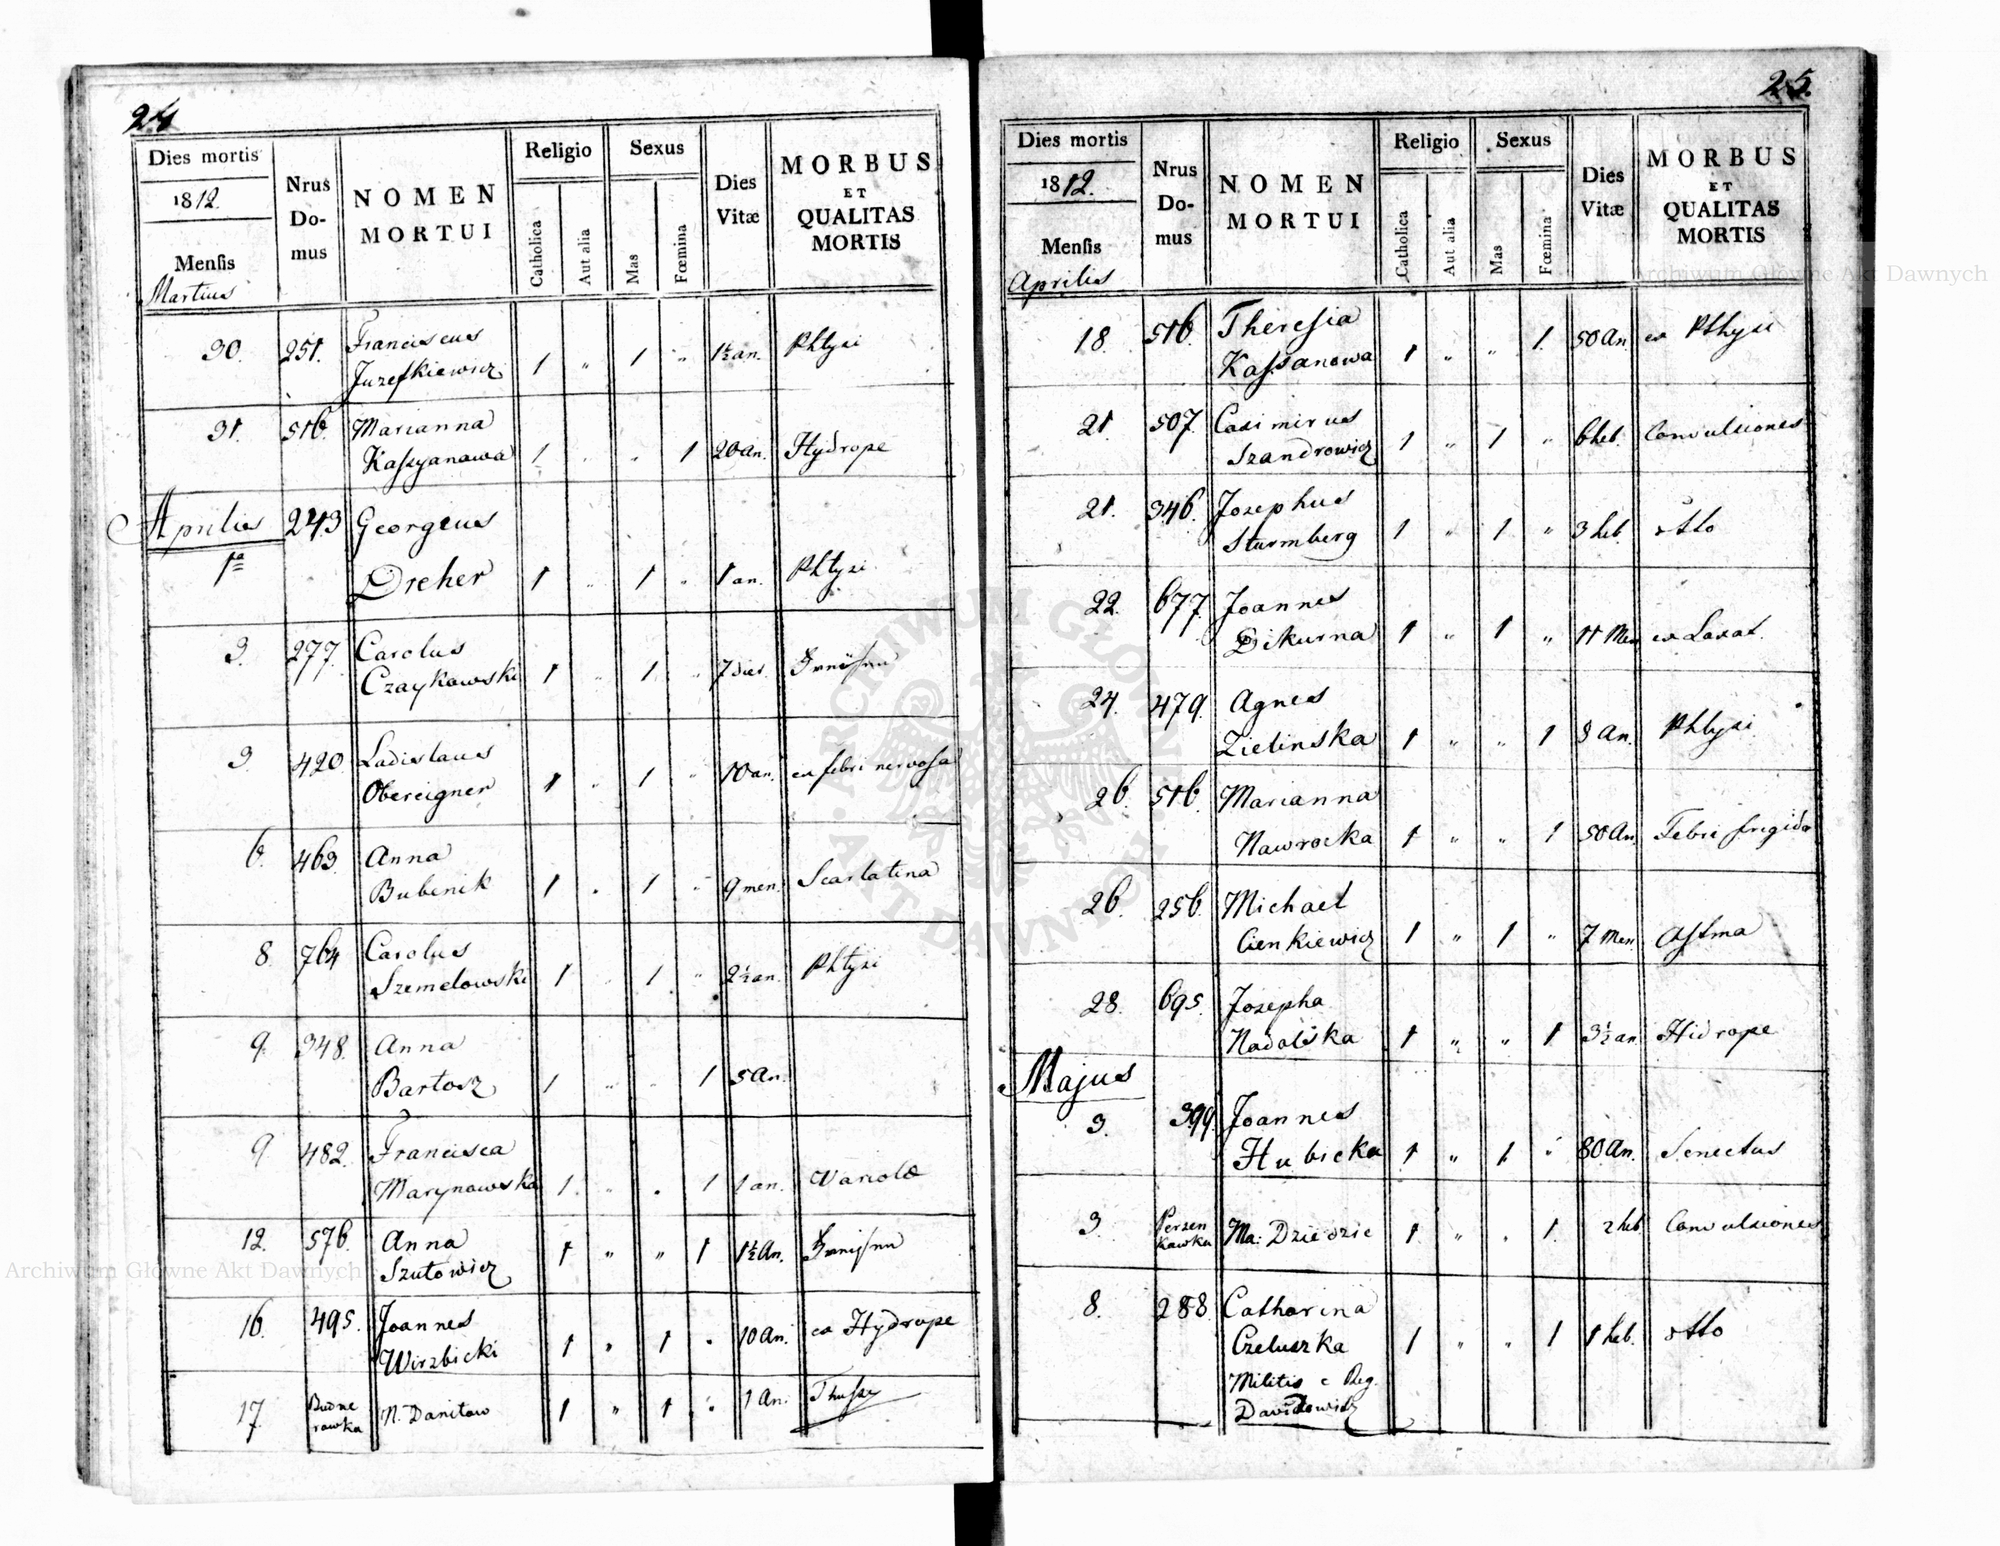 24
Dies mortis
1812.
Mensis
Martius
Nrus
Do-
mus
NOMEN
MORTUI
Religio
Catholica
Aut alia
Sexus
Mas
Fœmina
Dies
Vitæ
MORBUS
ET
QUALITAS
MORTIS
30. 251. Franciscus
Juzefkiewicz 1 " 1 " 1½ an. Phtysi
31. 516. Marianna
Kaszyanawa 1 " " 1 20 an. Hydrope
Aprilis 243 Georgius
1ma Dreher 1 " 1 " 1 an. Phtysi
3. 277. Carolus
Czaykowski 1 " 1 " 7 dies
3. 420. Ladislaus
Obereigner 1 " 1 " 10 an. ex febri nervosa
6. 463. Anna
Bubenik 1 " 1 " 9 men. Scarlatina
8. 764 Carolus
Szemelowski 1 " 1 " 2½ an. Phtysi
9. 348. Anna
Bartosz 1 " " 1 5 An.
9 482. Francisca
Marynowska 1 " " 1 1 an. Variolæ
12. 576. Anna
Szutowicz 1 " " 1 1½ An.
16. 495. Joannes
Wirzbicki 1 " 1 " 10 An. ex Hydrope
17. Budne
rowka N. Danilow 1 " 1 " 1 An.
25.
Dies mortis
1812.
Mensis
Aprilis
Nrus
Do-
mus
NOMEN
MORTUI
Religio
Catholica
Aut alia
Sexus
Mas
Fœmina
Dies
Vitæ
MORBUS
ET
QUALITAS
MORTIS
18. 516 Theresia
Kassanowa 1 " " 1. 50 An. ex Pthysi
21. 507. Casimirus
Szandrowicz 1 " 1 " 6 heb. Convulsiones
21. 346. Josephus
Sturmberg 1 " 1 " 3 heb. otto
22. 677. Joannes
Dikurna 1 " 1 " 11 Men ex Laxat.
24. 479. Agnes
Zielinska 1 " " 1 3 An. Phtysi
26. 516. Marianna
Nawrocka 1 " " 1 50 An. Febri frigida
26. 256. Michael
Cienkiewicz 1 " 1 " 7 Men Astma
28. 695. Josepha
Nadolska 1 " " 1 3½ an. Hidrope
Majus
3. 399. Joannes
Hubicka 1 " 1 " 80 An. Senectus
3 Perzen
kawka Ma: Dziedzic 1 " " 1. 2 heb Convulsiones
8. 288. Catharina
Czeluszka 1 " " 1 1 heb. otto
Militis e Reg.
Davidowicz
Archiwum Główne Akt Dawnych
Archiwum Główne Akt Dawnych
ARCHIWUM GŁÓWNE
AKT DAWNYCH